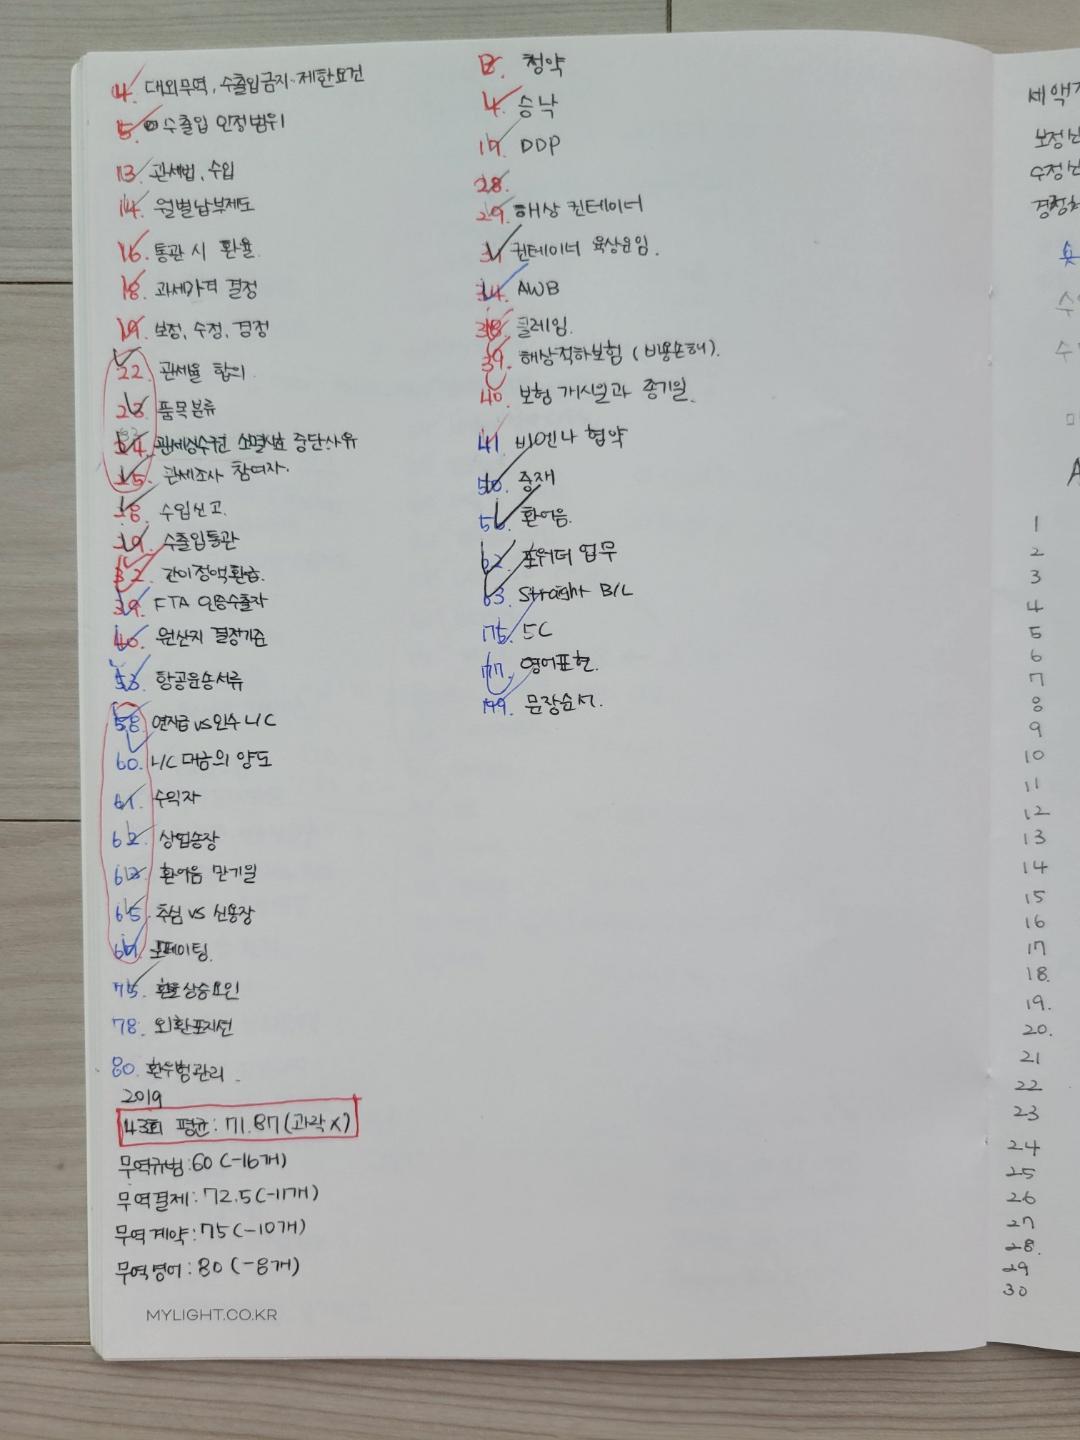 4. 대외무역, 수출입금지·제한요건
5. 수출입 인정범위
13. 관세법, 수입
14. 월별납부제도
16. 통관 시 환율.
18. 과세가격 결정
19. 보정, 수정, 경정
22. 관세율 합의.
23. 품목분류
24. 관세징수권 소멸시효 중단사유
25. 관세조사 참여자.
28. 수입신고.
29. 수출입통관
32. 간이정액환급.
39. FTA 인증수출자
40. 원산지 결정기준
53. 항공운송서류
58. 연지급 vs 인수 L/C
60. L/C 대금의 양도
61. 수익자
62. 상업송장
63. 환어음 만기일
65. 추심 vs 신용장
69. 포페이팅.
75. 환율상승요인
78. 외환포지션
80. 환위험관리.
2019
43회 평균: 71.87(과락X)
무역규범:60 (-16개)
무역결제: 72.5(-11개)
무역계약:75 (-10개)
무역영어:80 (-8개)
MYLIGHT.CO.KR
청약
4. 승낙
17. DDP
28.
29. 해상 컨테이너
31. 컨테이너 육상운임.
34. AWB
38. 클레임.
39. 해상적하보험 (비용손해).
40. 보험 개시일과 종기일.
41. 비엔나 협약
50. 중재
56. 환어음.
62. 포워더 업무
63. Straight B/L
175. 5C
177. 영어표현.
199. 문장순서.
세액
보정신
수정신
경정
1
2
3
4
5
6
7
8
9
10
11
12
13
14
15
16
17
18.
19.
20.
21
22
23
24
25
26
27
28.
29
30